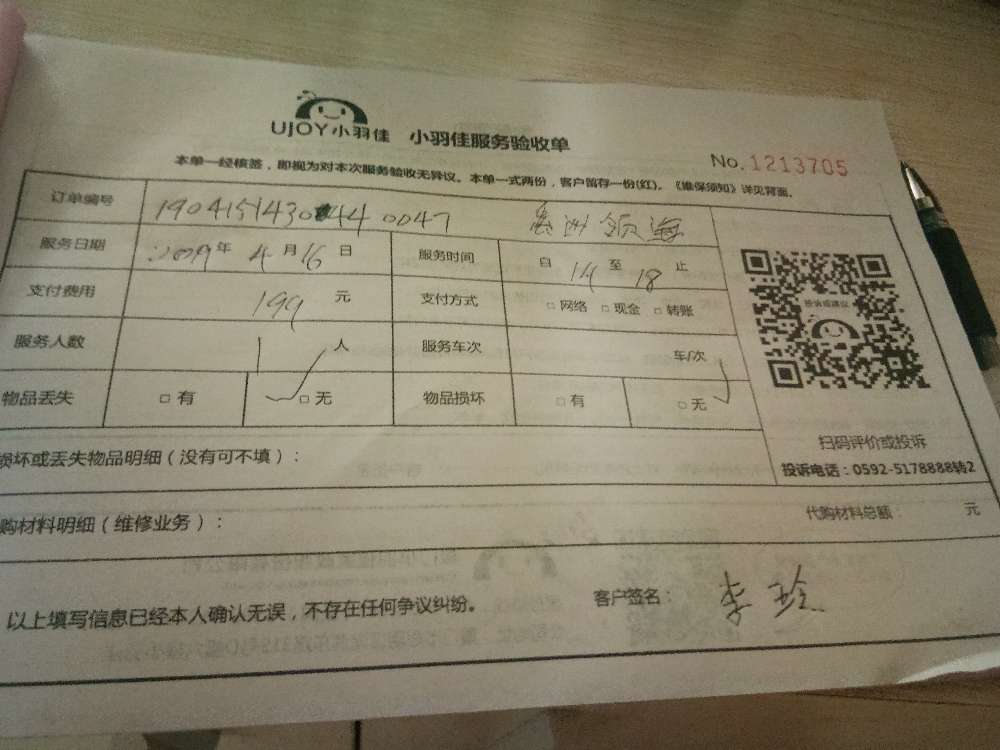 UJOY小羽佳 小羽佳服务验收单
No.1213705
本单一经核签，即视为对本次服务验收无异议。本单一式两份，客户留存一份(红)。《维保须知》详见背面。
订单编号 190415143044 0047
服务日期 2019年 4月16日 服务时间 自 14 至 18 止
支付费用 199 元 支付方式 □网络 □现金 □转账
服务人数 1 人 服务车次 车/次
物品丢失 □有 □无 物品损坏 □有 □无
投诉或建议
扫码评价或投诉
投诉电话：0592-5178888转2
损坏或丢失物品明细（没有可不填）：
购材料明细（维修业务）： 代购材料总额： 元
以上填写信息已经本人确认无误，不存在任何争议纠纷。 客户签名： 李玲